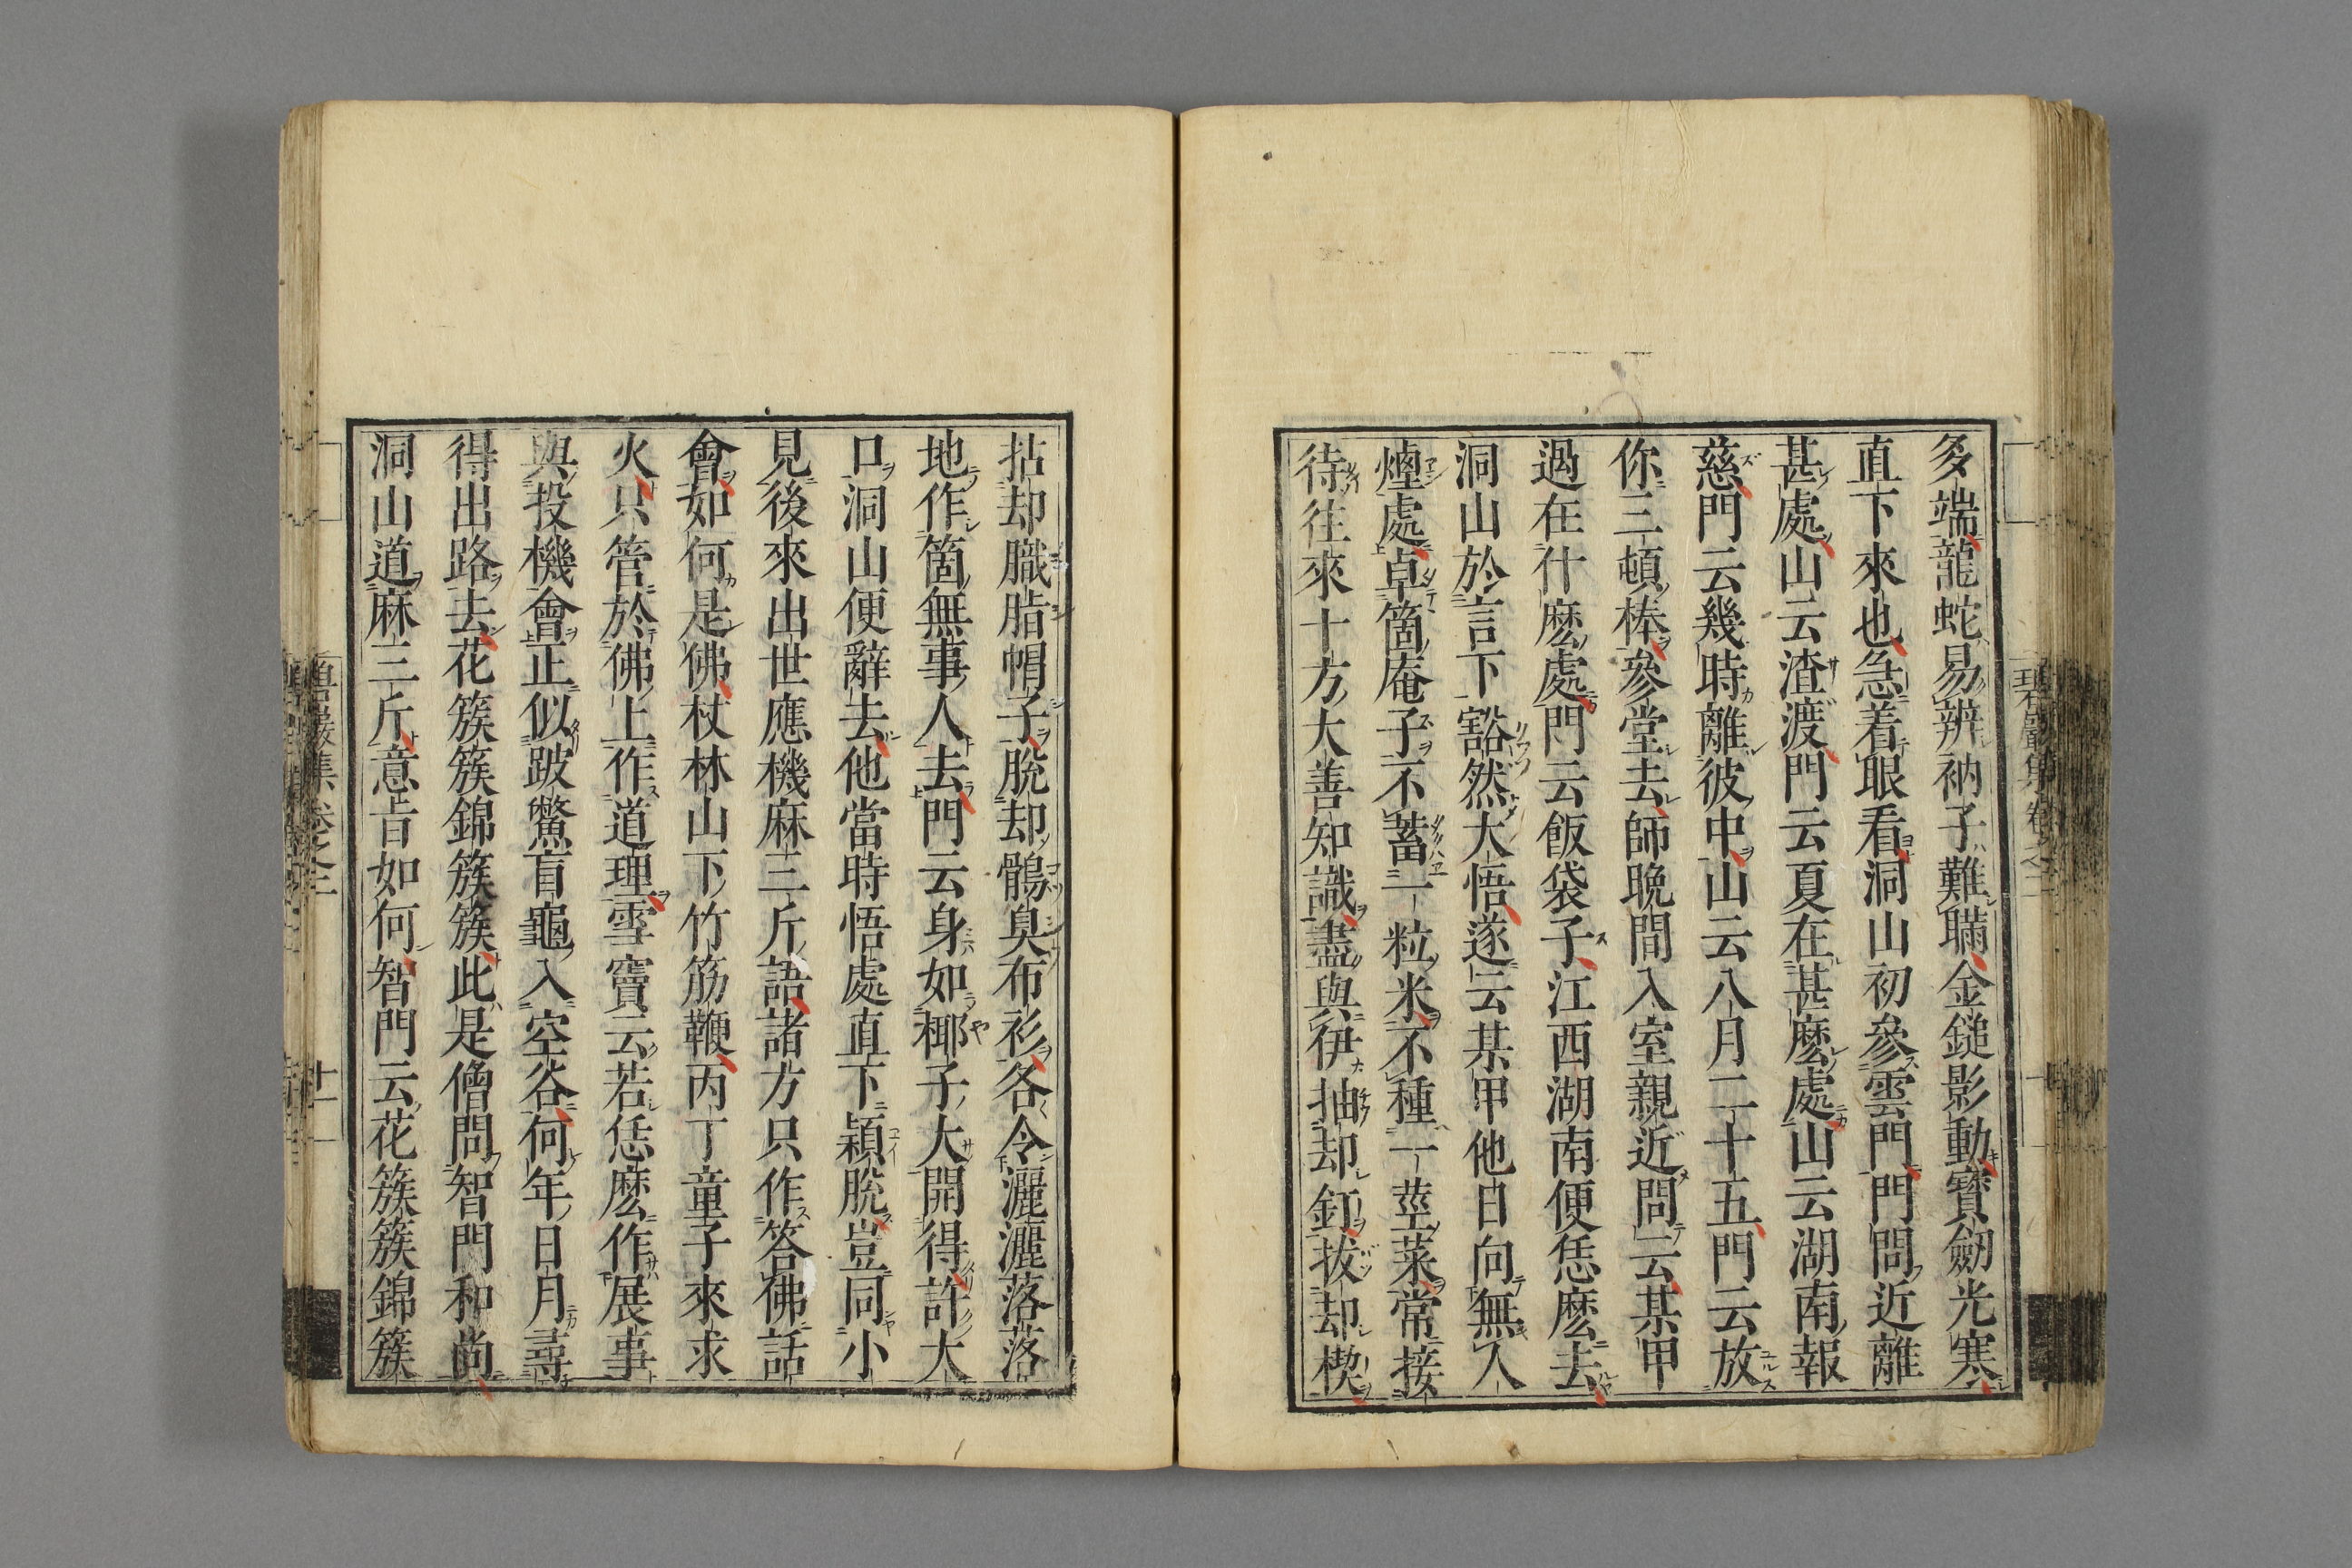 多端龍蛇易辨衲子難瞞金鎚影動寶劒光寒
直下來也急着眼看洞山初參雲門門問近離
甚處山云渣渡門云夏在甚麽處山云湖南報
慈門云幾時離彼中山云八月二十五門云放
你三頓棒參堂去師晩間入室親近問云某甲
過在什麽處門云飯袋子江西湖南便恁麽去
洞山於言下豁然大悟遂云某甲他日向無人
煙處卓箇庵子不蓄一粒米不種一莖菜常接
待往來十方大善知識盡與伊抽却釘拔却楔
拈却膱脂帽子脫却鶻臭布衫各令灑灑落落
地作箇無事人去門云身如椰子大開得許大
口洞山便辭去他當時悟處直下頴脫豈同小
見後來出世應機麻三斤語諸方只作答佛話
會如何是佛杖林山下竹筋鞭丙丁童子來求
火只管於佛上作道理雪竇云若恁麽作展事
與投機會正似跛鱉盲龜入空谷何年日月尋
得出路去花簇簇錦簇簇此是僧問智門和尚
洞山道麻三斤意旨如何智門云花簇簇錦簇
碧巖集卷之二